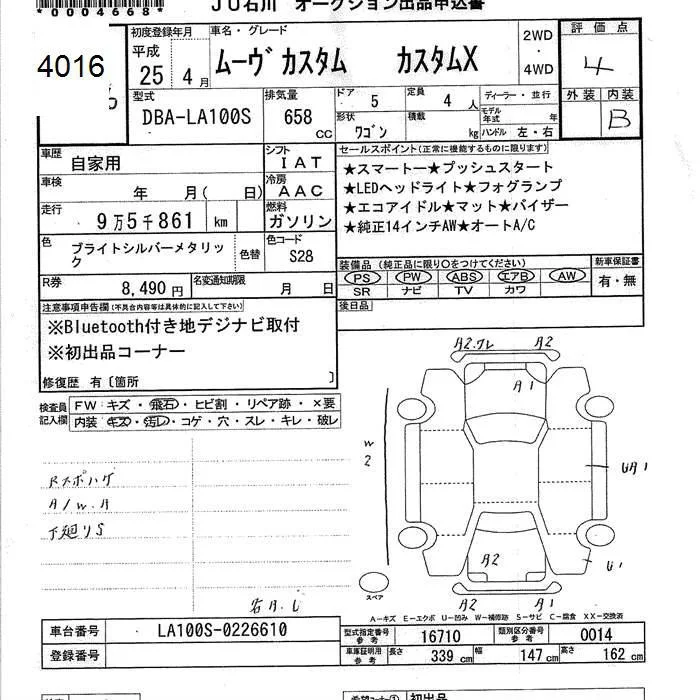 *0004668*
JU石川 オークション出品申込書
4016
初度登録年月
平成
25 4月
車名・グレード
ムーヴカスタム カスタムX
2WD
・
4WD
評価点
4
外装 内装
B
型式
DBA-LA100S
排気量
658
CC
ドア 5
定員 4人
形状 ワゴン
積載 kg
ディーラー・並行
モデル年式 年
ハンドル 左・右
車歴 自家用
シフト IAT
車検 年 月( 日)
冷房 AAC
走行 9万5千861 km
燃料 ガソリン
色 ブライトシルバーメタリック
色替
色コード S28
R券 8,490円
名変通知期限 月 日
セールスポイント(正常に機能するものに限ります)
★スマートー★プッシュスタート
★LEDヘッドライト★フォグランプ
★エコアイドル★マット★バイザー
★純正14インチAW★オートA/C
装備品(純正品に限り○をつけてください)
PS PW ABS エアB AW
SR ナビ TV カワ
新車保証書
有・無
後日品
注意事項申告欄(不具合内容等は具体的に記入して下さい)
※Bluetooth付き地デジナビ取付
※初出品コーナー
修復歴 有〔箇所 〕
検査員記入欄
FW キズ・飛石・ヒビ割・リペア跡・×要
内装 キズ・汚レ・コゲ・穴・スレ・キレ・破レ
Rスポハゲ
A/W.A
下廻りS
A2.ワレ A2
A1
W
2
UA1
A2
U1
スペア
A2 A1
A-キズ E-エクボ U-凹み W-補修跡 S-サビ C-腐食 XX-交換済
車台番号 LA100S-0226610
登録番号
型式指定番号 参考 16710
類別区分番号 参考 0014
車庫証明用 参考
長さ 339 cm
幅 147 cm
高さ 162 cm
希望コーナー① 初出品